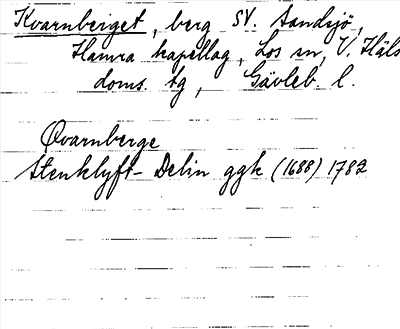 Kvarnberget, berg SV. Sandsjö,
Hamra kapellag, Los sn, V. Häls
doms. tg, Gävleb. l.
Qvarnberge
Stenklyft- Delin ggk (1688) 1782